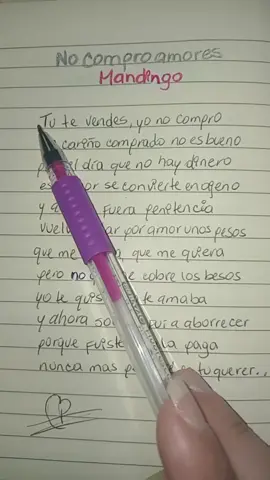 No compro amores
Mandingo
Tu te vendes, yo no compro
cariño comprado no es bueno
el día que no hay dinero
se convierte en ajeno
y fuera penitencia
por amor unos pesos
que me que me quiera
pero no cobre los besos
yo te te amaba
y ahora a aborrecer
porque fuiste la paga
nunca mas tu querer...